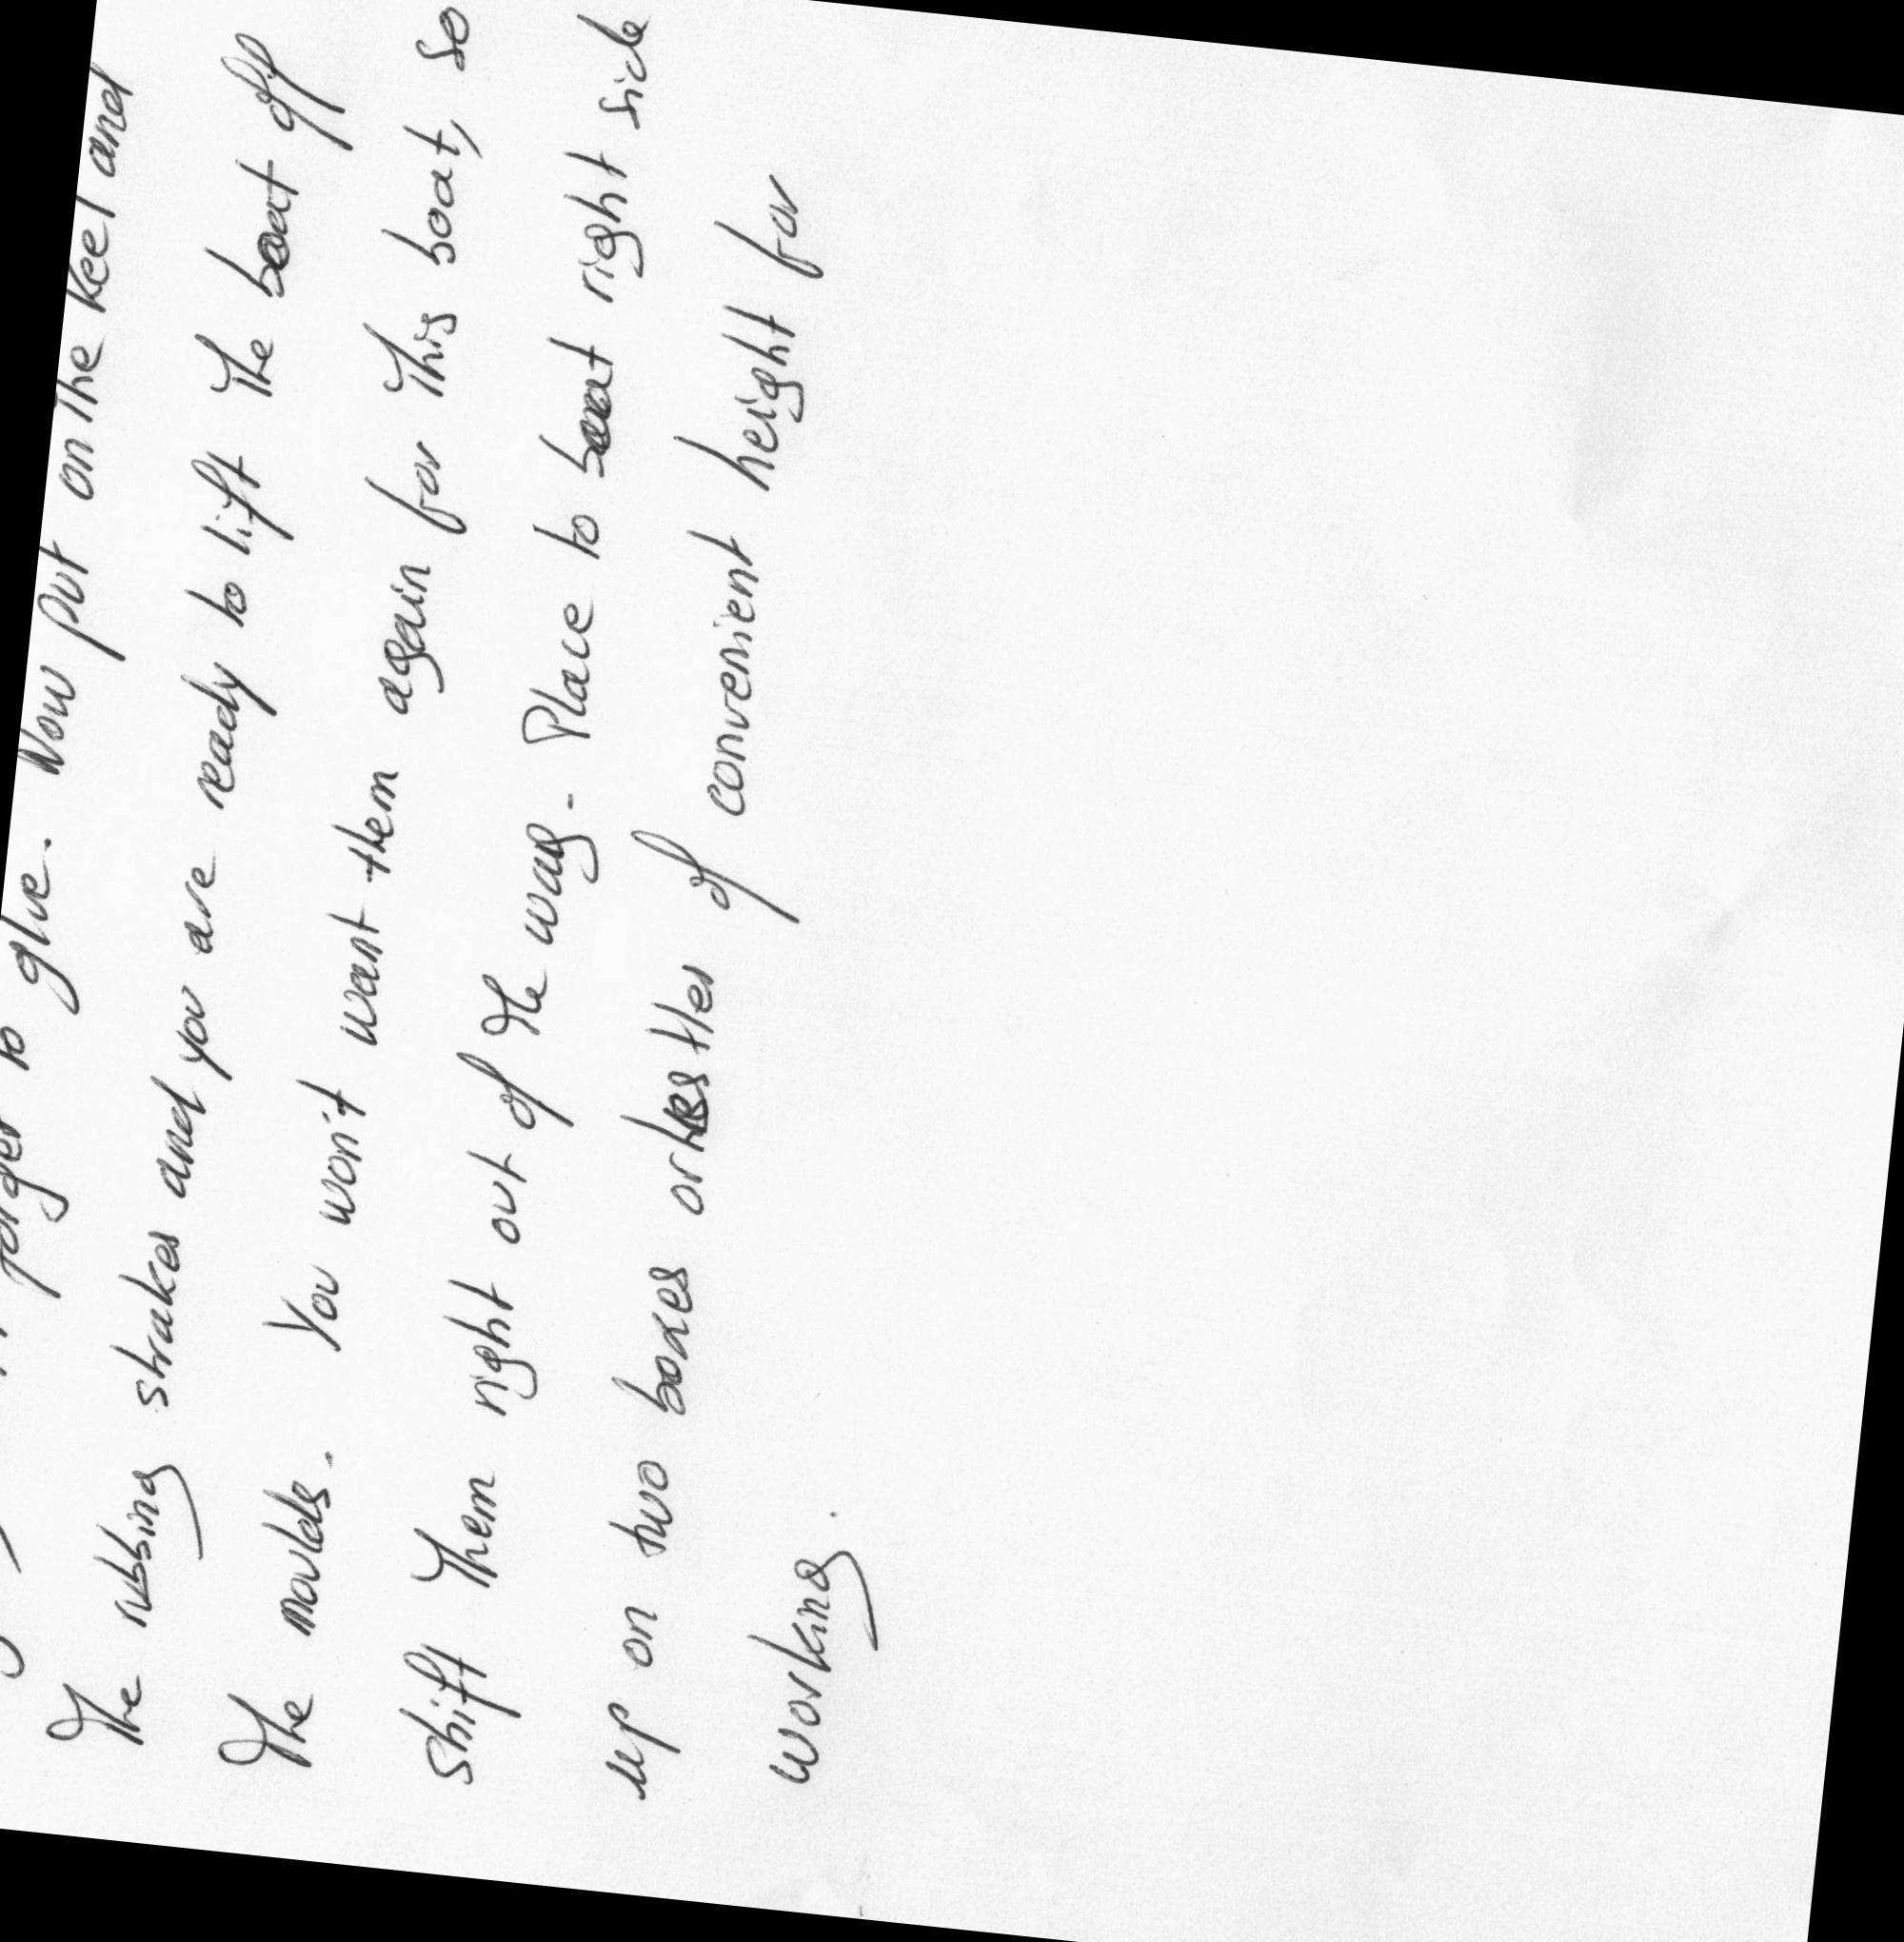 forget to glue. Now put on the keel and
the rubbing strakes and you are ready to lift the boat off
the moulds. You won't want them again for this boat, so
shift them right out of the way. Place to boat right side
up on two boxes or trestles of convenient height for
working.